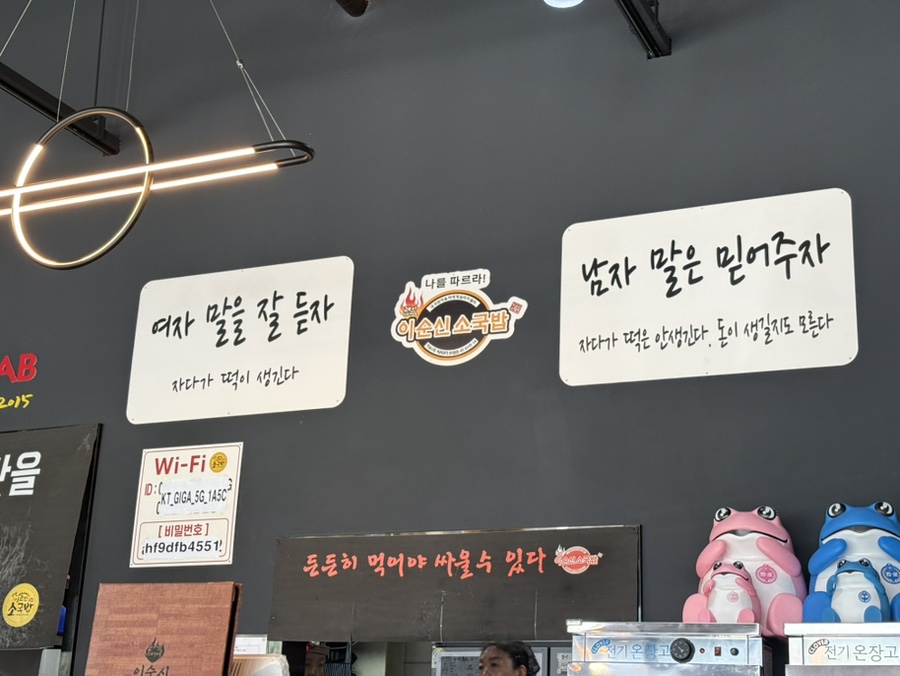 여자 말을 잘 듣자
자다가 떡이 생긴다
나를 따르라!
이순신 소국밥
남자 말은 믿어주자
자다가 떡은 안생긴다. 돈이 생길지도 모른다
AB
2015
Wi-Fi
ID :
KT_GIGA_5G_1A5C
[ 비밀번호 ]
hf9dfb4551
든든히 먹어야 싸울수 있다
이순신 소국밥
소국밥
이순신
전기 온장고
전기 온장고